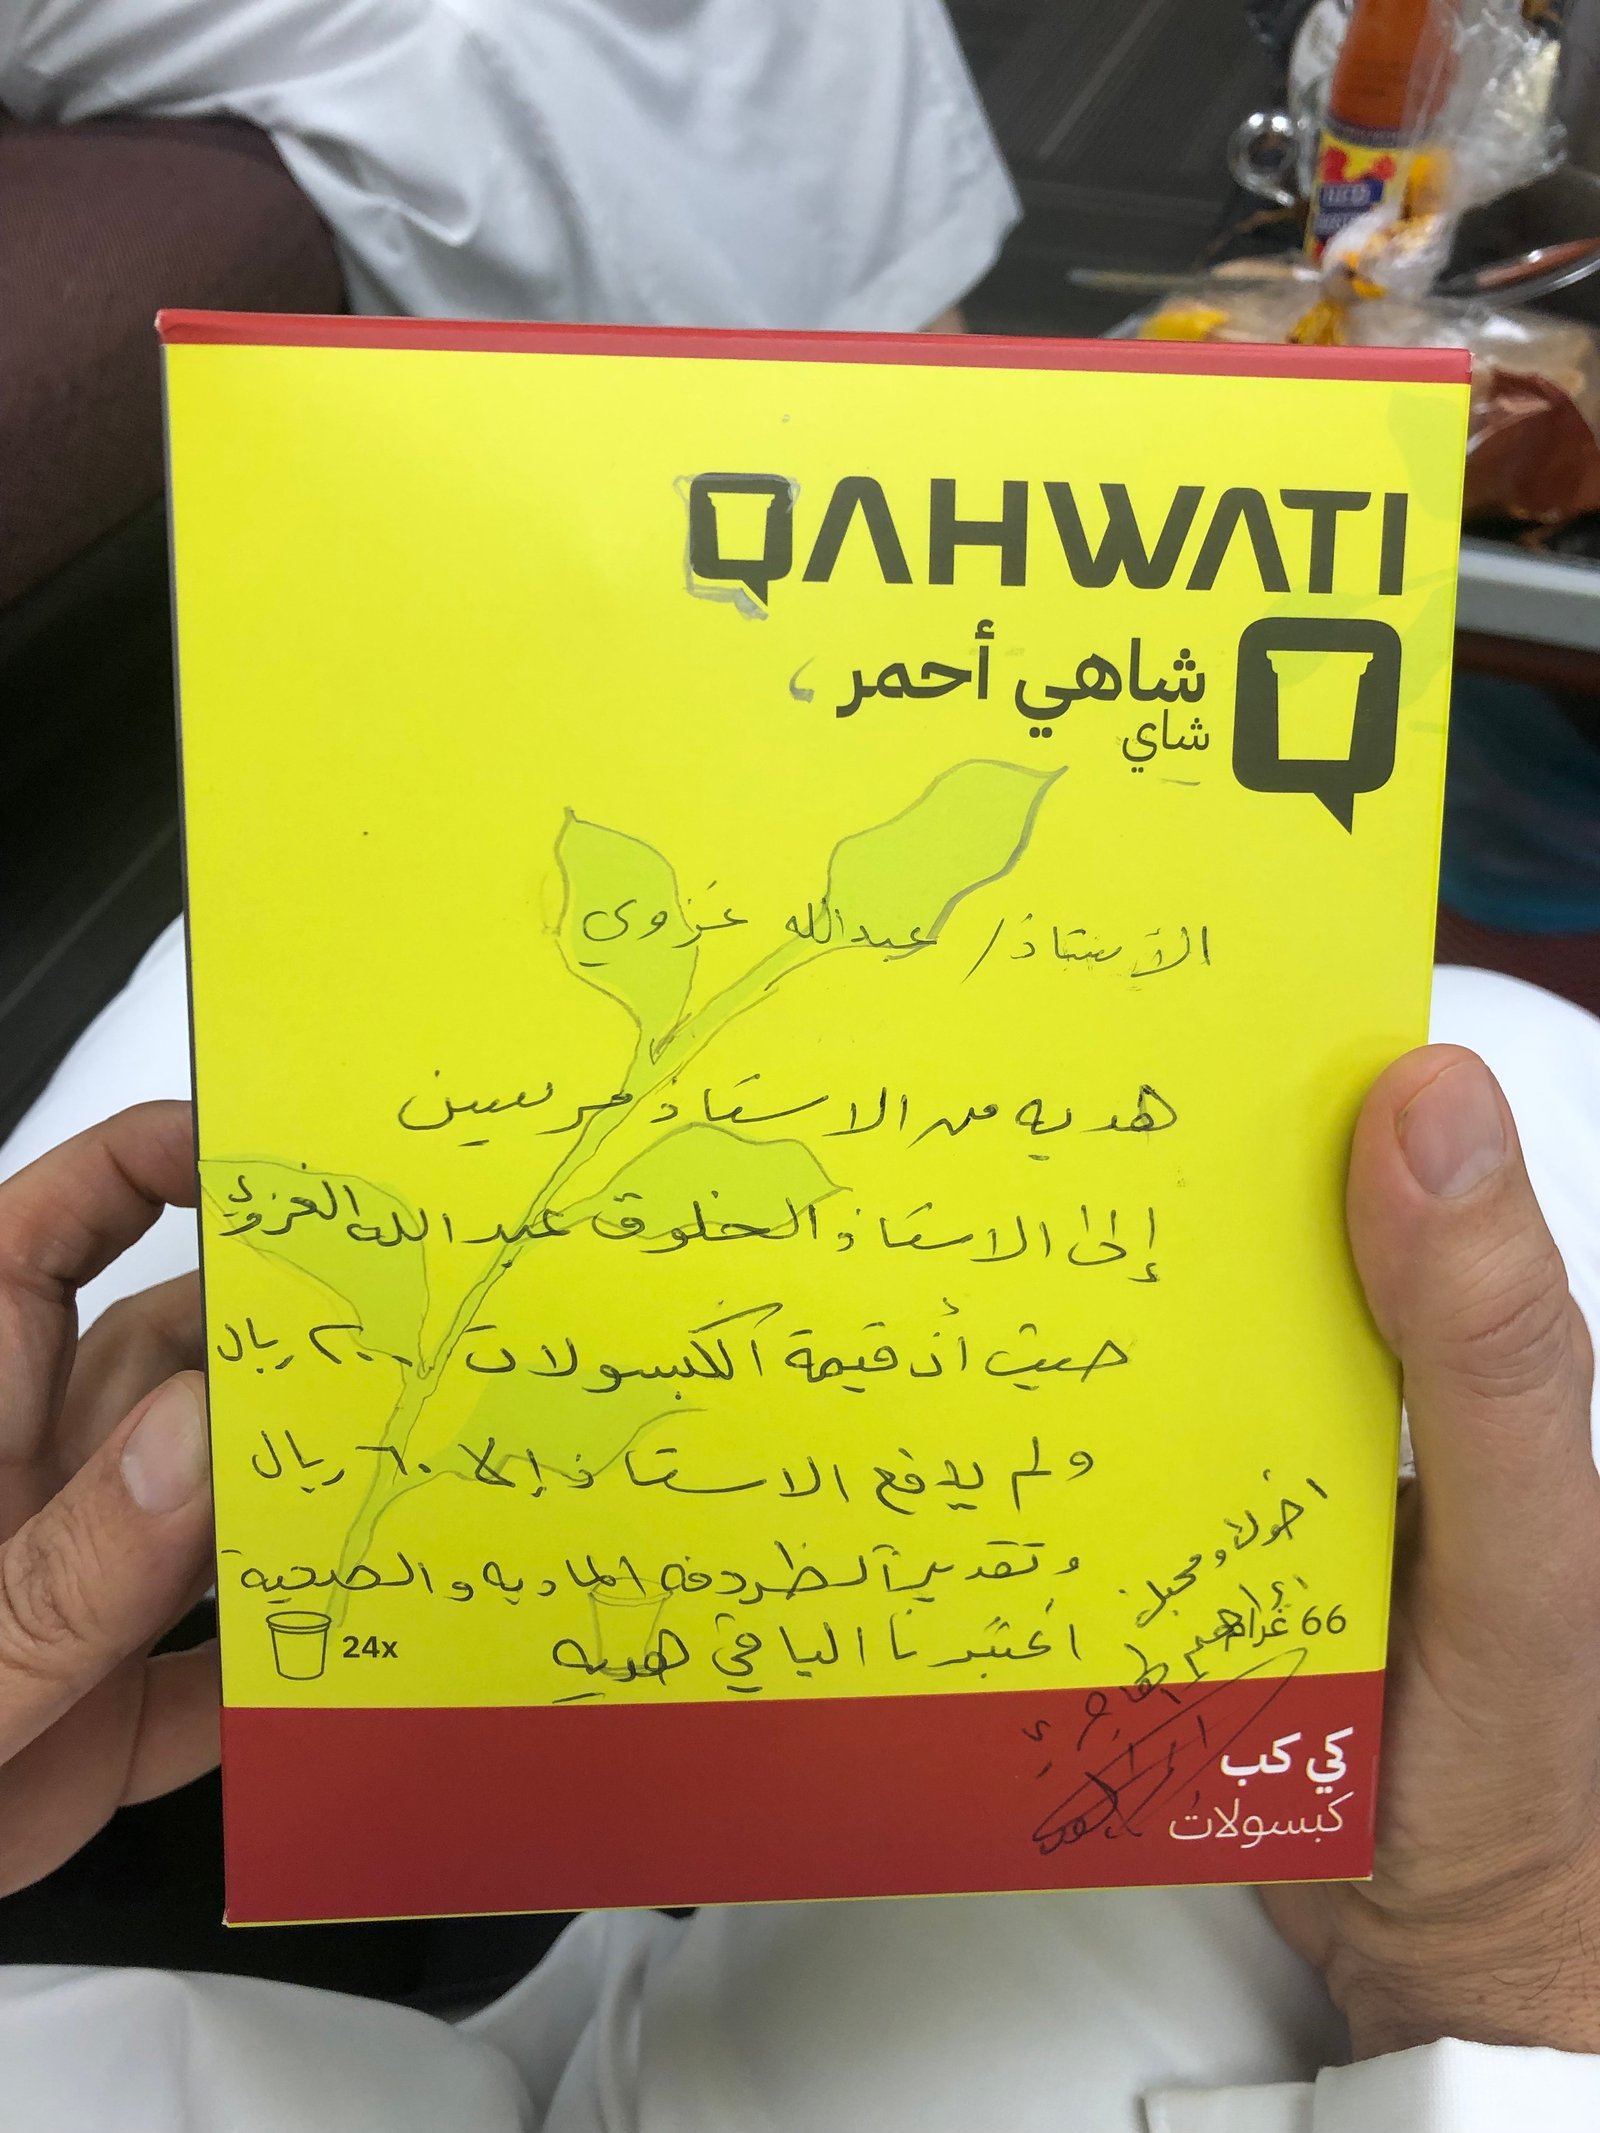 QAHWATI
شاهي أحمر
شاي
الأستاذ/ عبدالله غزوي
هديه من الاستاذ
إلى الاستاذ الخلوق عبدالله الغزوي
حيث أن قيمة الكبسولات ٢٠٠ ريال
ولم يدفع الاستاذ إلا ٦٠ ريال
وتقديراً لظروفه الماديه والصحية
اعتبرنا الباقي هديه
اخوك ومحبك
66 غرام
24x
كي كب
كبسولات